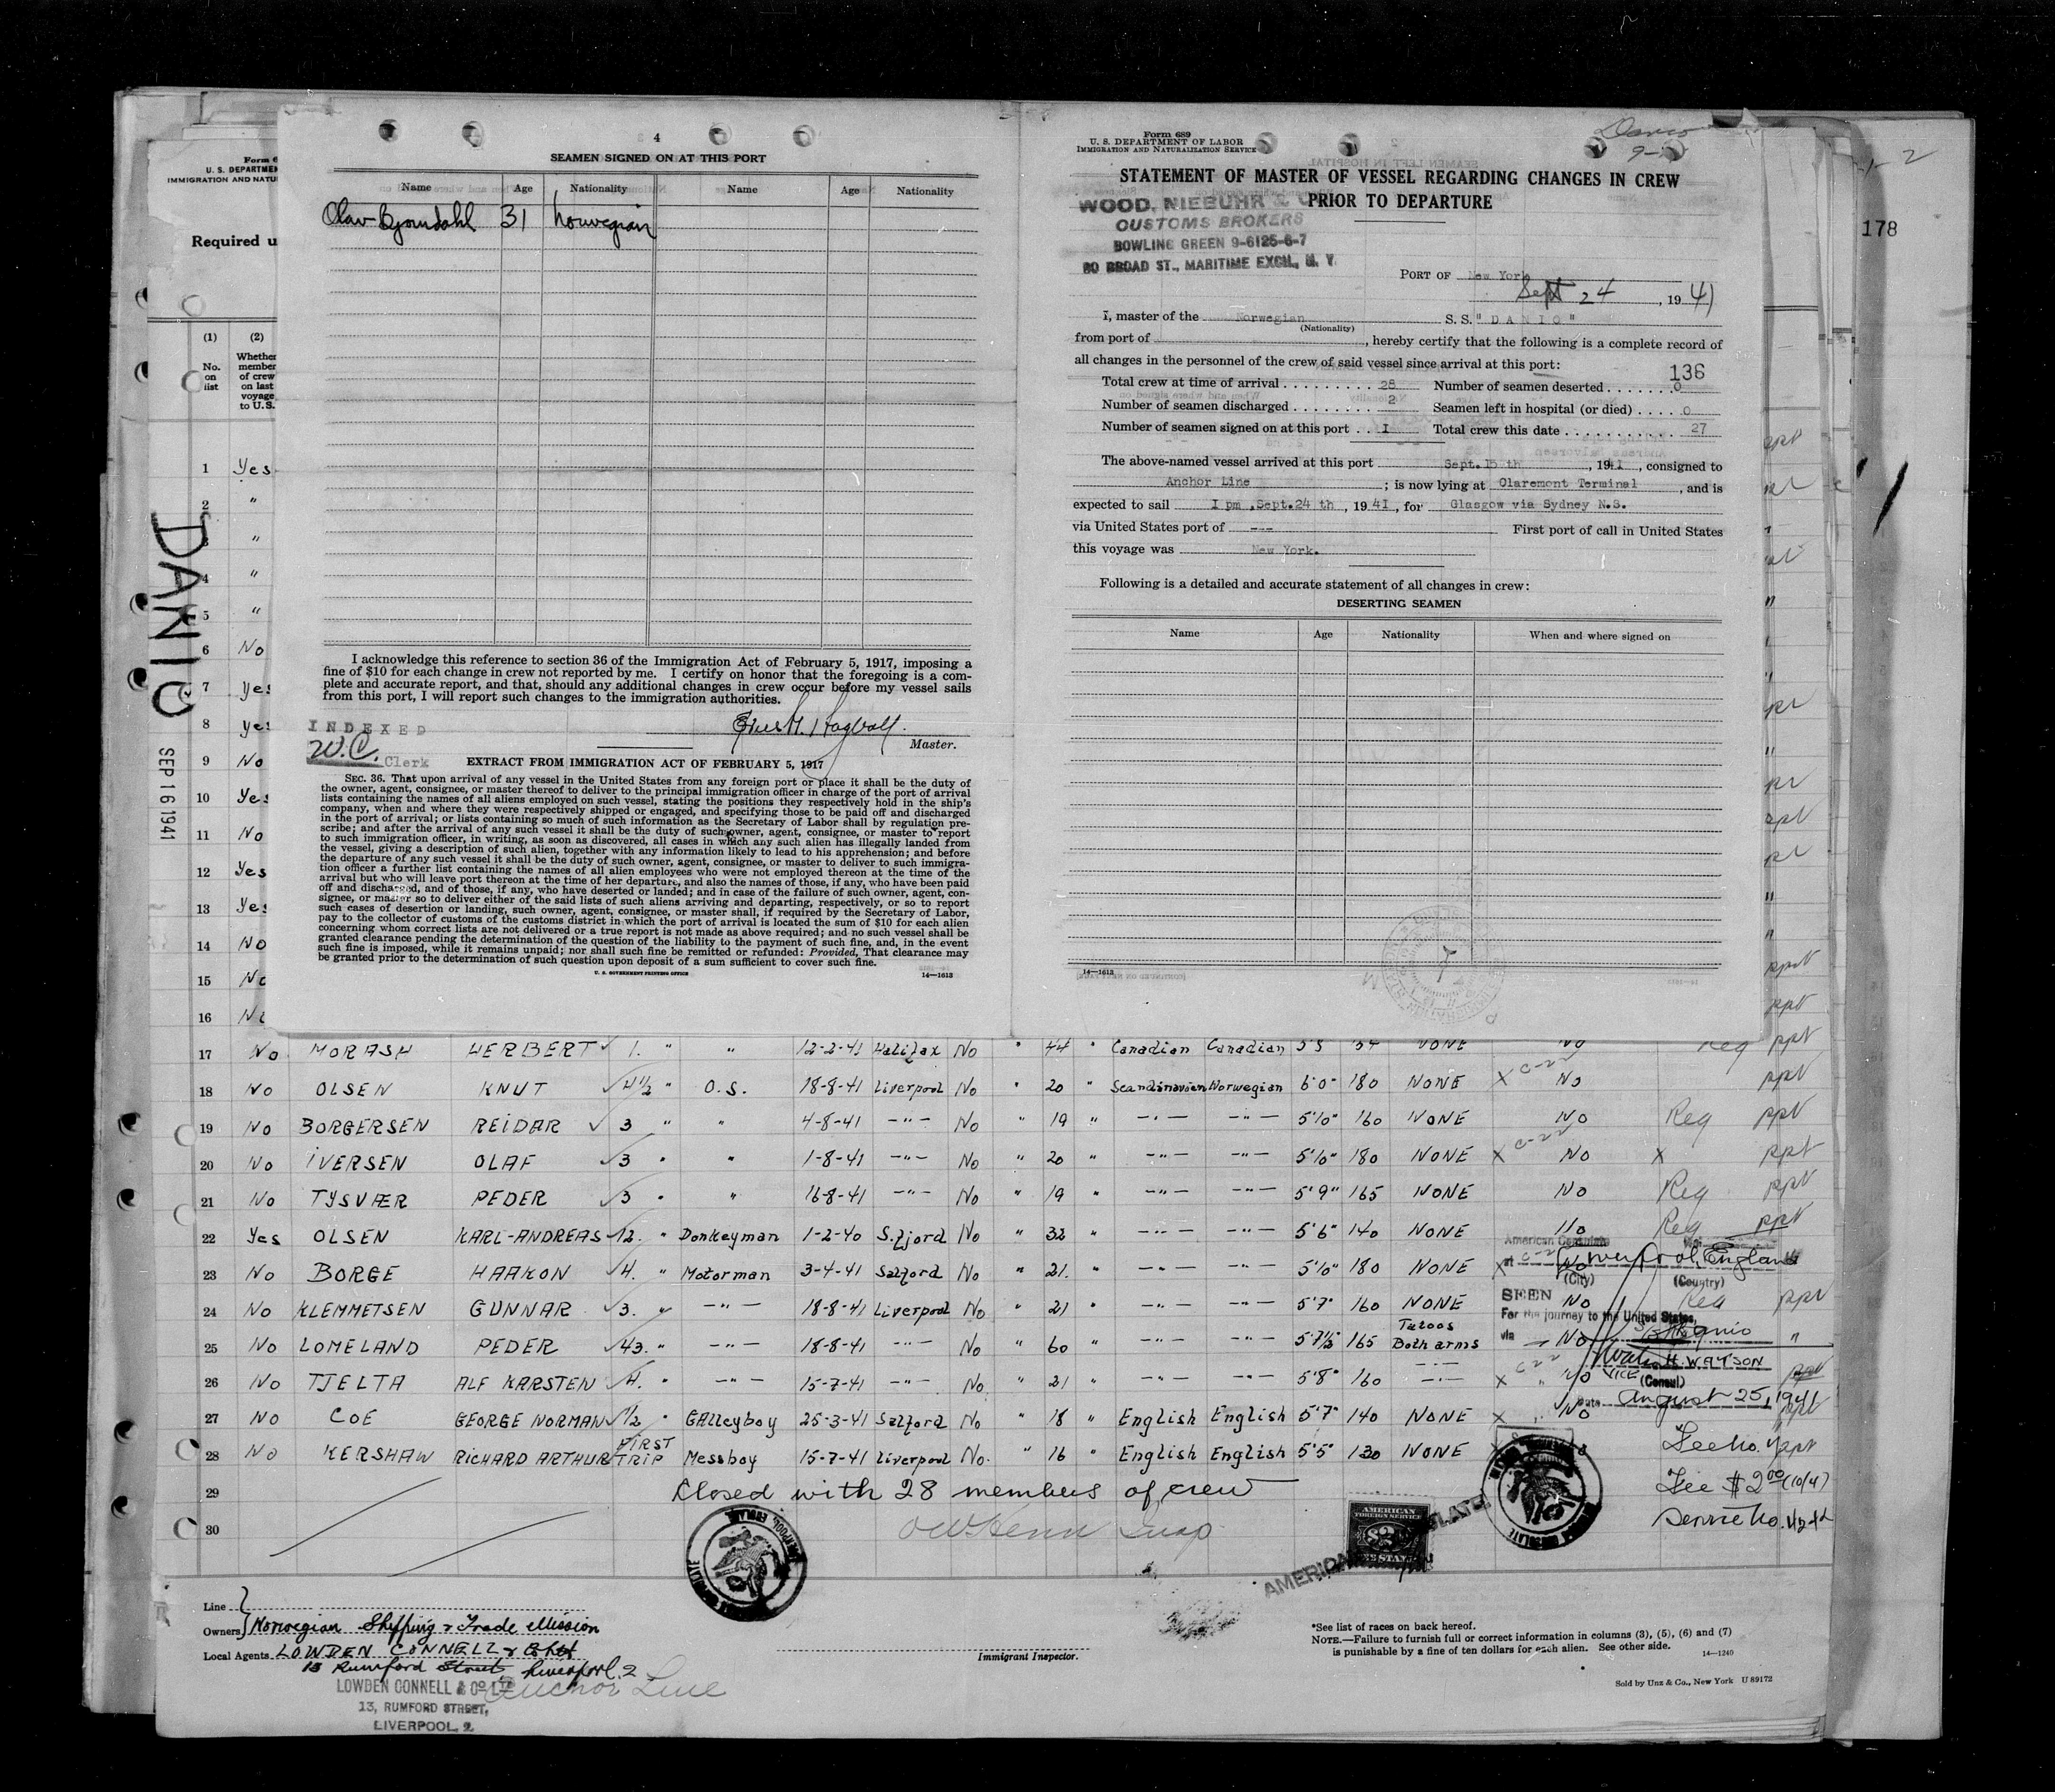 4
SEAMEN SIGNED ON AT THIS PORT
Name Age Nationality Name Age Nationality
Olav 31 Norwegian
I acknowledge this reference to section 36 of the Immigration Act of February 5, 1917, imposing a
fine of $10 for each change in crew not reported by me. I certify on honor that the foregoing is a com-
plete and accurate report, and that, should any additional changes in crew occur before my vessel sails
from this port, I will report such changes to the immigration authorities.
INDEXED
W.C. Clerk
Master.
EXTRACT FROM IMMIGRATION ACT OF FEBRUARY 5, 1917
SEC. 36. That upon arrival of any vessel in the United States from any foreign port or place it shall be the duty of
the owner, agent, consignee, or master thereof to deliver to the principal immigration officer in charge of the port of arrival
lists containing the names of all aliens employed on such vessel, stating the positions they respectively hold in the ship's
company, when and where they were respectively shipped or engaged, and specifying those to be paid off and discharged
in the port of arrival; or lists containing so much of such information as the Secretary of Labor shall by regulation pre-
scribe; and after the arrival of any such vessel it shall be the duty of such owner, agent, consignee, or master to report
to such immigration officer, in writing, as soon as discovered, all cases in which any such alien has illegally landed from
the vessel, giving a description of such alien, together with any information likely to lead to his apprehension; and before
the departure of any such vessel it shall be the duty of such owner, agent, consignee, or master to deliver to such immigra-
tion officer a further list containing the names of all alien employees who were not employed thereon at the time of the
arrival but who will leave port thereon at the time of her departure, and also the names of those, if any, who have been paid
off and discharged, and of those, if any, who have deserted or landed; and in case of the failure of such owner, agent, con-
signee, or master so to deliver either of the said lists of such aliens arriving and departing, respectively, or so to report
such cases of desertion or landing, such owner, agent, consignee, or master shall, if required by the Secretary of Labor,
pay to the collector of customs of the customs district in which the port of arrival is located the sum of $10 for each alien
concerning whom correct lists are not delivered or a true report is not made as above required; and no such vessel shall be
granted clearance pending the determination of the question of the liability to the payment of such fine, and, in the event
such fine is imposed, while it remains unpaid; nor shall such fine be remitted or refunded: Provided, That clearance may
be granted prior to the determination of such question upon deposit of a sum sufficient to cover such fine.
U. S. GOVERNMENT PRINTING OFFICE 14—1613
Form 689
U. S. DEPARTMENT OF LABOR
IMMIGRATION AND NATURALIZATION SERVICE
Danio
STATEMENT OF MASTER OF VESSEL REGARDING CHANGES IN CREW
PRIOR TO DEPARTURE
WOOD, NIEBUHR & C
CUSTOMS BROKERS
BOWLING GREEN 9-6125-6-7
80 BROAD ST., MARITIME EXCH., N. Y.
PORT OF New York
Sept 24, 1941
I, master of the Norwegian S. S. "DANIO"
(Nationality)
from port of , hereby certify that the following is a complete record of
all changes in the personnel of the crew of said vessel since arrival at this port:
136
Total crew at time of arrival 28 Number of seamen deserted 0
Number of seamen discharged 2 Seamen left in hospital (or died) 0
Number of seamen signed on at this port I Total crew this date 27
The above-named vessel arrived at this port Sept.15 th, 1941, consigned to
Anchor Line ; is now lying at Claremont Terminal, and is
expected to sail I pm ,Sept.24 th, 1941, for Glasgow via Sydney N.S.
via United States port of --- First port of call in United States
this voyage was New York.
Following is a detailed and accurate statement of all changes in crew:
DESERTING SEAMEN
Name Age Nationality When and where signed on
14—1613
178
Form 6
U. S. DEPARTMEN
IMMIGRATION AND NATU
Required u
(1) (2)
No. on list
Whether member of crew on last voyage to U.S.
DANIO
SEP 16 1941
1 Yes
2 "
3 "
4 "
5 "
6 No
7 Yes
8 Yes
9 No
10 Yes
11 No
12 Yes
13 Yes
14 No
15 No
16 No
17 No MORASH HERBERT 1. " " 12-2-41 Halifax No " 44 " Canadian Canadian NONE No Reg ppt
18 No OLSEN KNUT 4½ " O.S. 18-8-41 Liverpool No " 20 " Scandinavian Norwegian 6'0" 180 NONE X C-22 No ppt
19 No BORGERSEN REIDAR 3 " " 4-8-41 —"— No " 19 " —"— —"— 5'10" 160 NONE No Reg ppt
20 No IVERSEN OLAF 3 " " 1-8-41 —"— No " 20 " —"— —"— 5'10" 180 NONE X C-22 No X ppt
21 No TYSVÆR PEDER 3 " " 16-8-41 —"— No " 19 " —"— —"— 5'9" 165 NONE No Reg ppt
22 Yes OLSEN KARL-ANDREAS 12. " Donkeyman 1-2-40 S.fjord No " 32 " —"— —"— 5'6" 140 NONE No Reg ppt
23 No BORGE HAAKON 4. " Motorman 3-4-41 Salford No " 21. " —"— —"— 5'10" 180 NONE X C-22 No
24 No KLEMMETSEN GUNNAR 3. " —"— 18-8-41 Liverpool No " 21 " —"— —"— 5'7" 160 NONE No Reg ppt
25 No LOMELAND PEDER 43. " —"— 18-8-41 —"— No " 60 " —"— —"— 5'7½" 165 Tatoos Both arms No "
26 No TJELTA ALF KARSTEN 4. " —"— 15-7-41 —"— No. " 21 " —"— —"— 5'8" 160 —"— X C-22 No ppt
27 No COE GEORGE NORMAN 1/2 " Galleyboy 25-3-41 Salford No " 18 " English English 5'7" 140 NONE X No ppt
28 No KERSHAW RICHARD ARTHUR FIRST TRIP Messboy 15-7-41 Liverpool No. " 16 " English English 5'5" 130 NONE ppt
29 Closed with 28 members of crew
30
American Consulate
at Liverpool, England
(City) (Country)
SEEN
For the journey to the United States,
via S/S Danio
H. WATSON
VICE (Consul)
Date August 25, 1941
Fee $2.00
Service No.
AMERICAN FOREIGN SERVICE
$2
FEE STAMP
AMERICAN CONSULATE
Line
Owners Norwegian Shipping & Trade Mission
Local Agents LOWDEN CONNELL &
13 Rumford Street, Liverpool, 2
Anchor Line
LOWDEN CONNELL & Co LTD
13, RUMFORD STREET,
LIVERPOOL, 2
Immigrant Inspector.
*See list of races on back hereof.
NOTE.—Failure to furnish full or correct information in columns (3), (5), (6) and (7)
is punishable by a fine of ten dollars for each alien. See other side.
14—1240
Sold by Unz & Co., New York U 89172